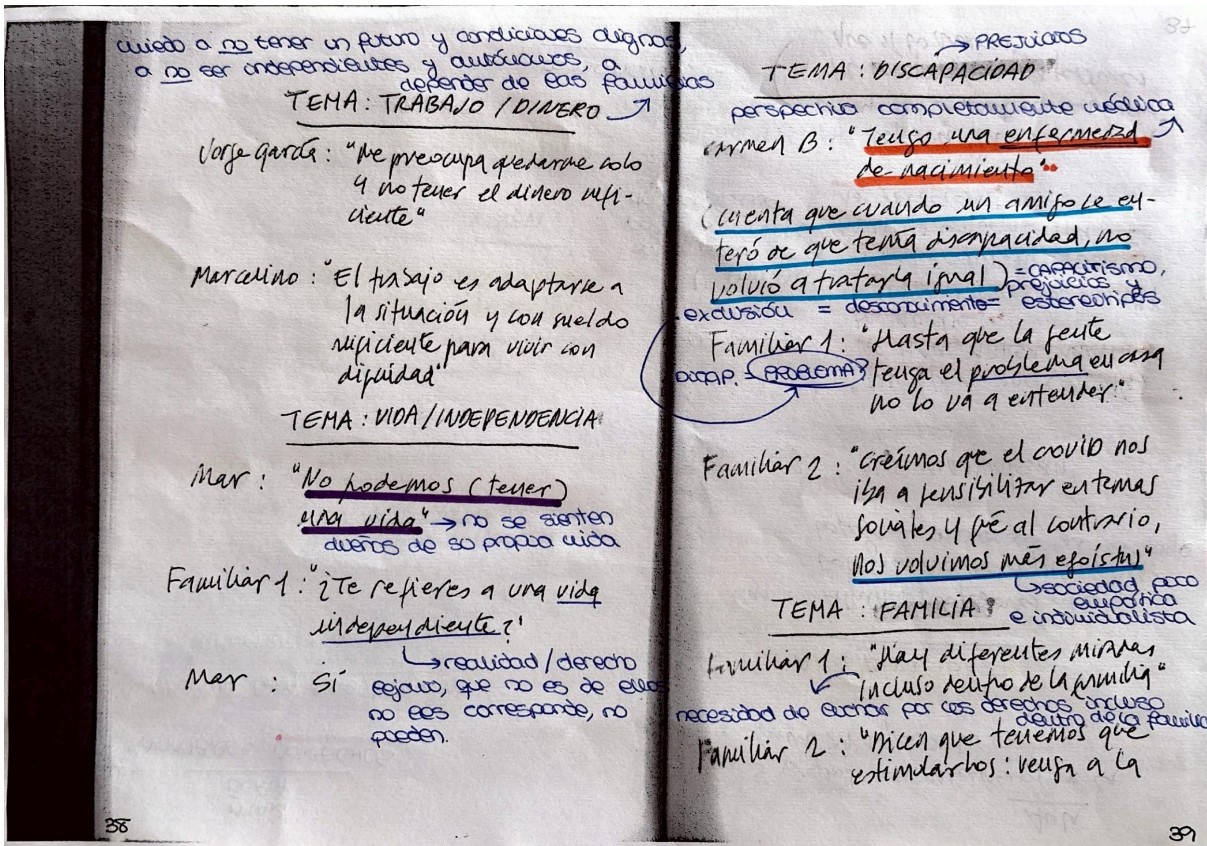 miedo a no tener un futuro y condiciones dignas,
a no ser independientes y autónomos, a
depender de las familias
TEMA: TRABAJO / DINERO
Jorge García: "Me preocupa quedarme solo
y no tener el dinero sufi-
ciente"
Marcelino: "El trabajo es adaptarse a
la situación y con sueldo
suficiente para vivir con
dignidad"
TEMA: VIDA / INDEPENDENCIA
Mar: "No podemos (tener)
una vida" → no se sienten
dueños de su propia vida
Familiar 1: "¿Te refieres a una vida
independiente?"
→ realidad / derecho
Mar: Sí
lejano, que no es de ellos
no les corresponde, no
pueden.
38
→ PREJUICIOS
TEMA: DISCAPACIDAD
perspectiva completamente médica
Carmen B: "Tengo una enfermedad
de nacimiento"
(cuenta que cuando un amigo se en-
teró de que tenía discapacidad, no
volvió a tratarla igual) = CAPACITISMO,
prejuicios y
exclusión = desconocimiento = estereotipos
Familiar 1: "Hasta que la gente
DISCAP. = PROBLEMA? tenga el problema en casa
no lo va a entender."
Familiar 2: "Creímos que el covid nos
iba a sensibilizar en temas
sociales y fue al contrario,
nos volvimos más egoístas"
→ sociedad poco
empática
e individualista
TEMA: FAMILIA
Familiar 1: "Hay diferentes miradas
incluso dentro de la familia"
necesidad de luchar por los derechos incluso
dentro de la familia
Familiar 2: "Dicen que tenemos que
estimularlos: venga a la
39